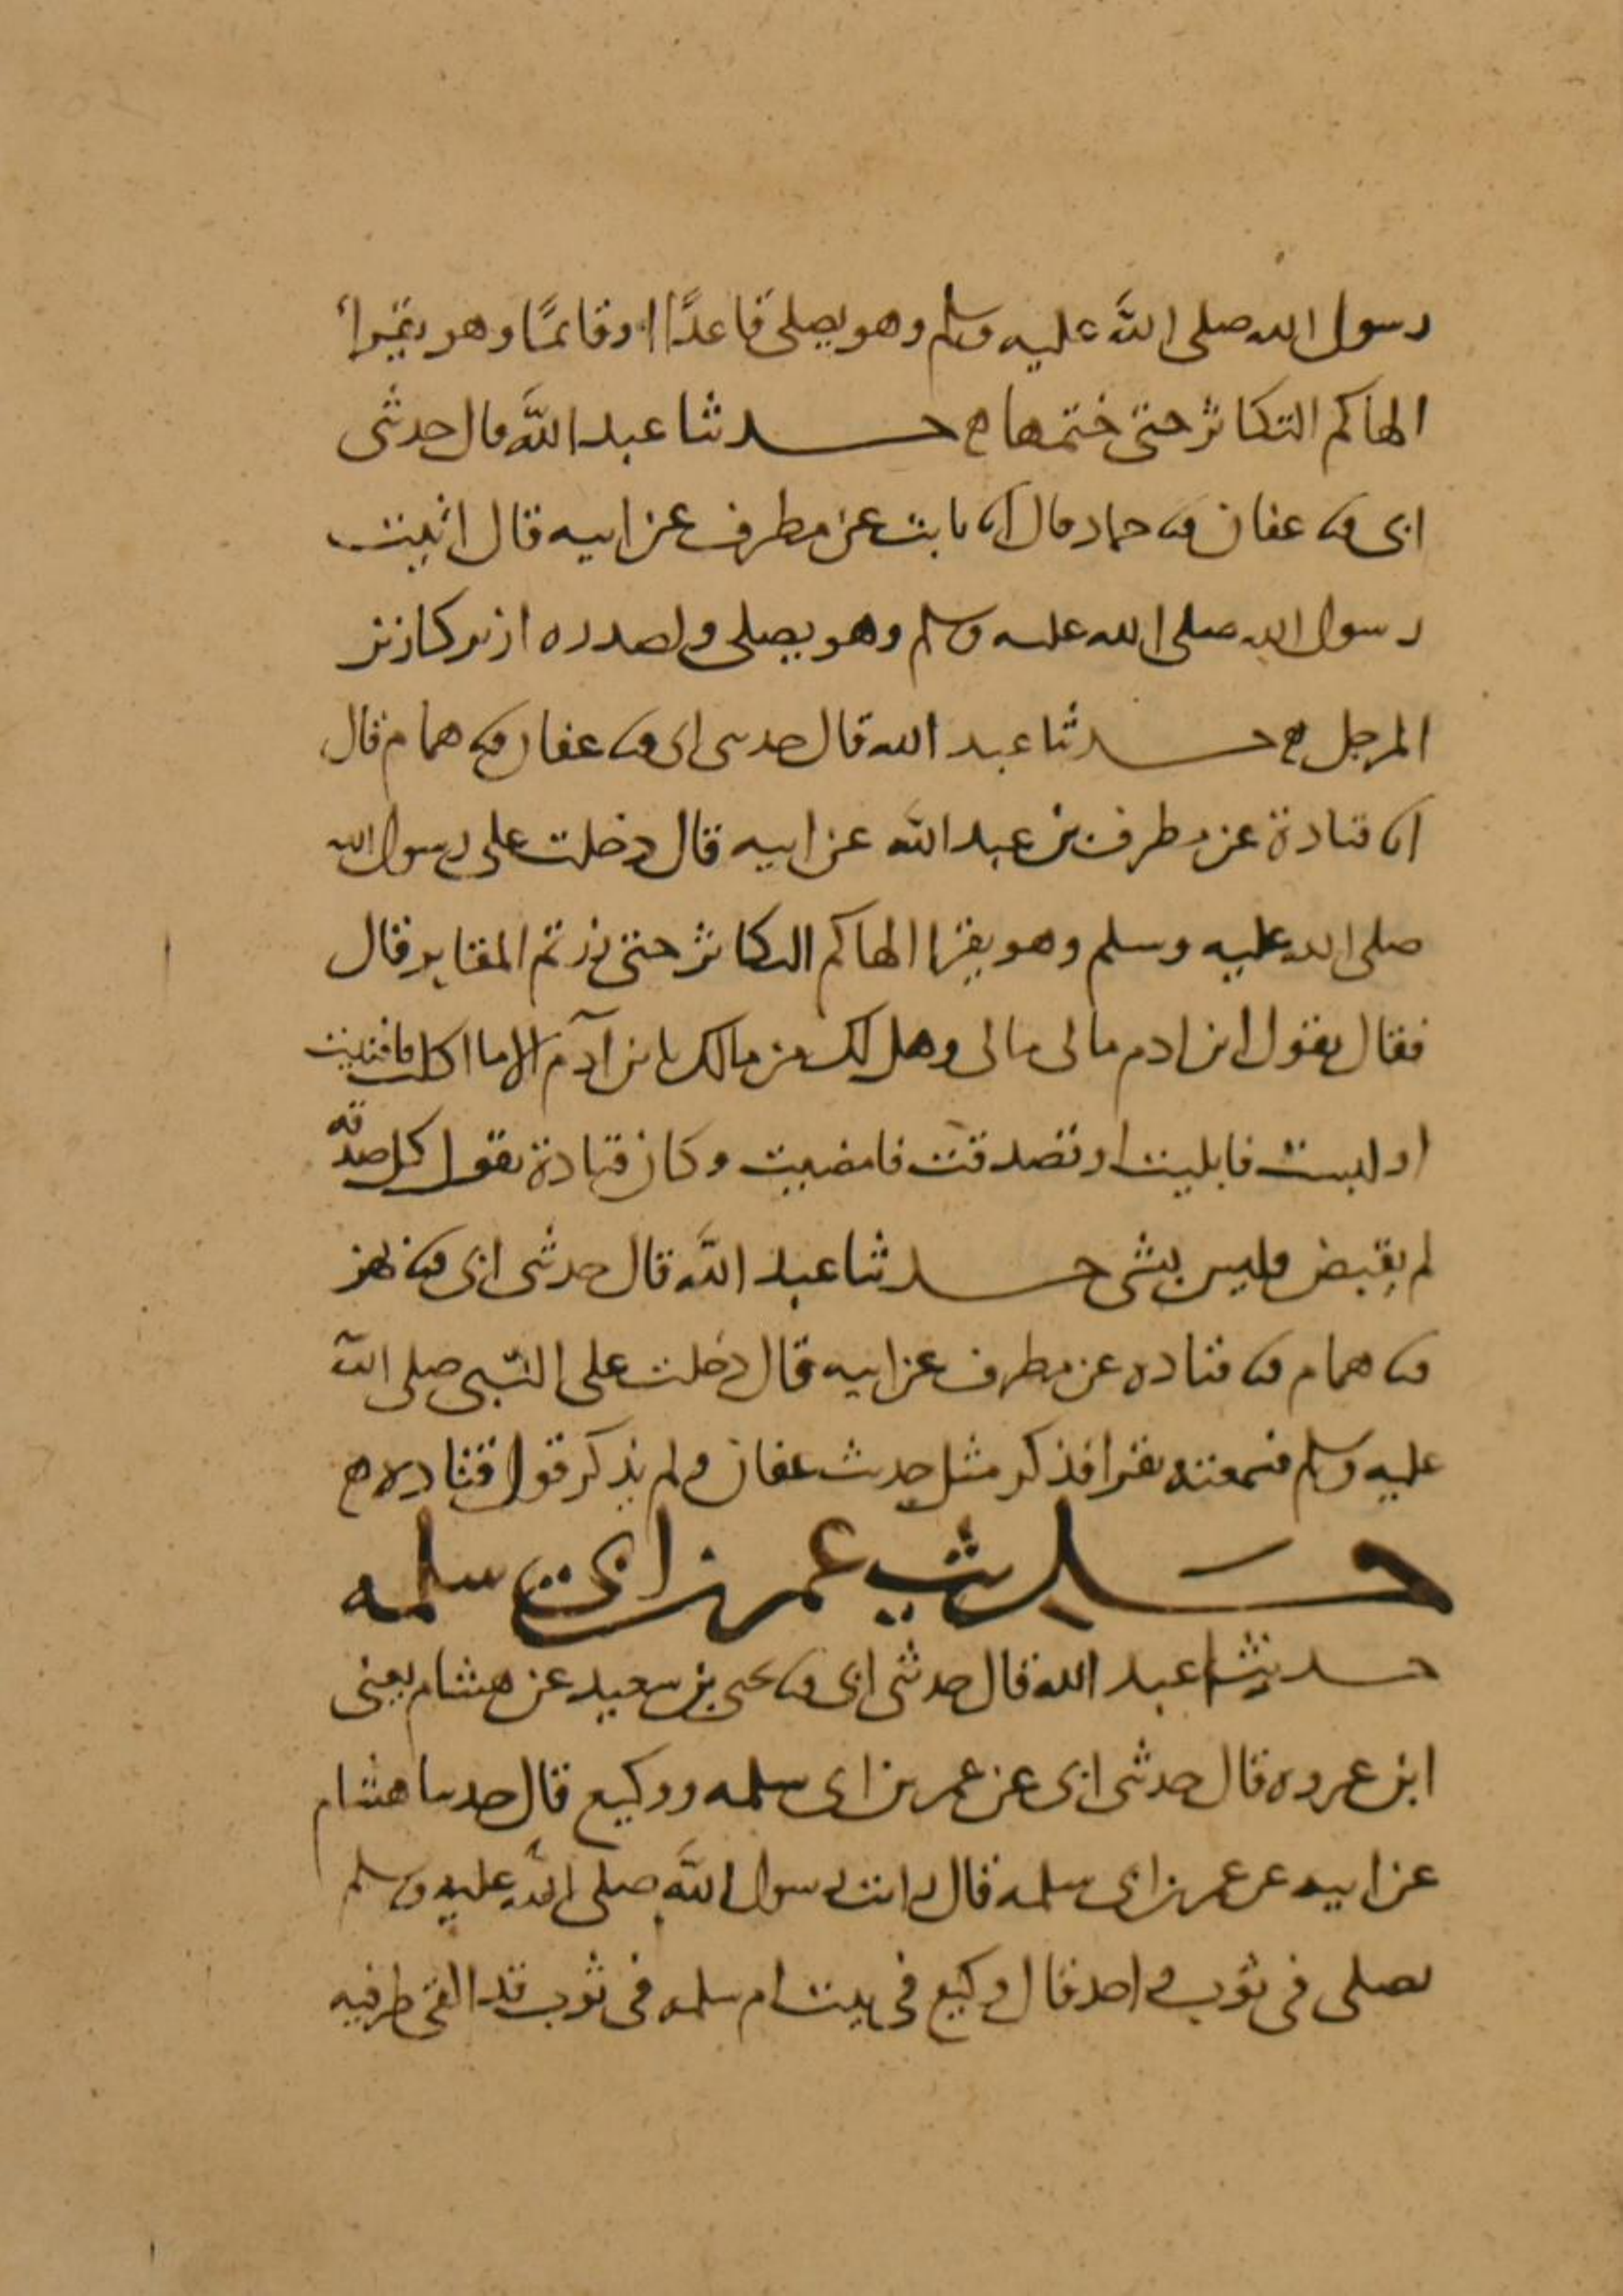 رسول الله صلى الله عليه وسلم وهو يصلى قاعدًا او قائمًا وهو يقرأ
الهاكم التكاثر حتى ختمها ح حدثنا عبد الله قال حدثنى
ابى ثنا عفان ثنا حماد قال انا ثابت عن مطرف عن ابيه قال اتيت
رسول الله صلى الله عليه وسلم وهو يصلى ولصدره ازيز كازيز
المرجل ح حدثنا عبد الله قال حدثنى ابى ثنا عفان ثنا همام قال
انا قتادة عن مطرف بن عبد الله عن ابيه قال دخلت على رسول الله
صلى الله عليه وسلم وهو يقرا الهاكم التكاثر حتى زرتم المقابر قال
فقال يقول ابن ادم مالى مالى وهل لك من مالك يا بن آدم الا ما اكلت فافنيت
او لبست فابليت او تصدقت فامضيت وكان قتادة يقول كل صدقه
لم يقبض فليس بشى حدثنا عبد الله قال حدثنى ابى ثنا بهز
ثنا همام ثنا قتاده عن مطرف عن ابيه قال دخلت على النبى صلى الله
عليه وسلم فسمعته يقرا فذكر مثل حديث عفان ولم يذكر قول قتاده ح
حديث عمر بن ابى سلمه
حدثنا عبد الله قال حدثنى ابى ثنا يحيى بن سعيد عن هشام يعنى
ابن عروه قال حدثنى ابى عن عمر بن ابى سلمه ووكيع قال حدثنا هشام
عن ابيه عن عمر بن ابى سلمه قال رايت رسول الله صلى الله عليه وسلم
يصلى فى ثوب واحد قال وكيع فى بيت ام سلمه فى ثوب قد القى طرفيه